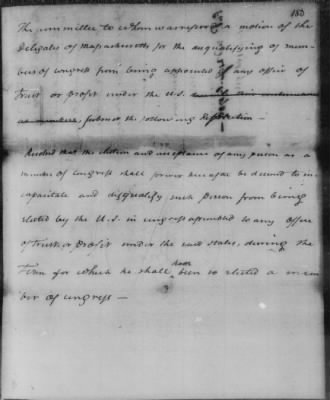 180
The committee to whom was referred a motion of the
Delegates of Massachusetts for the disqualifying of mem-
bers of Congress from being appointed to any office of
trust or profit under the U.S.
as members, submit the following
Resolved that the election and acceptance of any person as a
member of Congress shall forever hereafter be deemed to in-
capacitate and disqualify such person from being
elected by the U.S. in Congress assembled to any office
of trust or profit under the said states, during the
Term for which he shall have been so elected a mem-
ber of Congress —